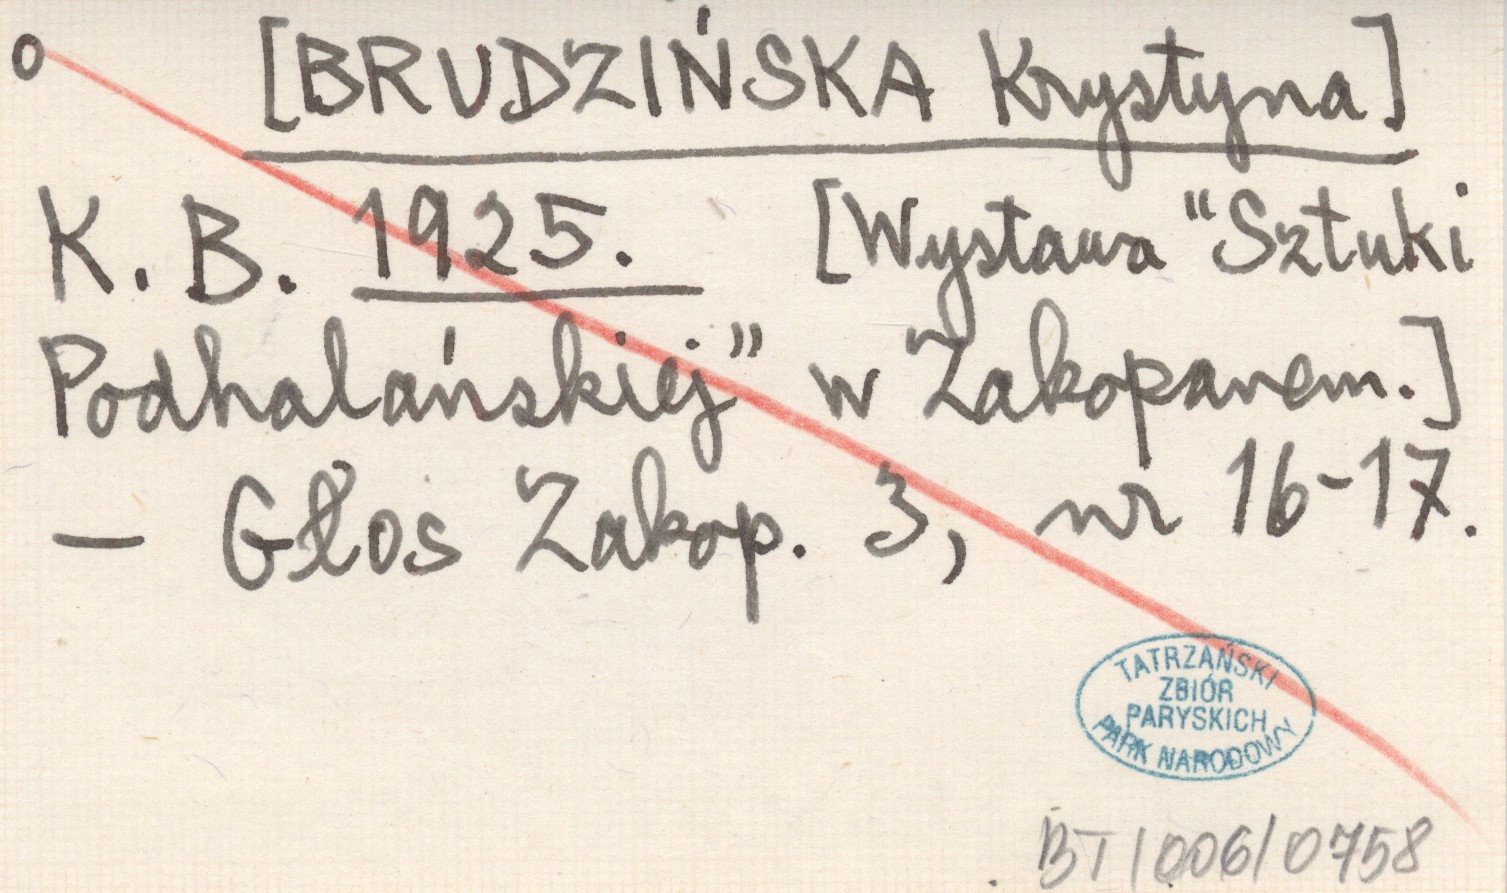 o [BRUDZIŃSKA Krystyna]
K. B. 1925. [Wystawa "Sztuki
Podhalańskiej" w Zakopanem.]
— Głos Zakop. 3, nr 16-17.
TATRZAŃSKI
ZBIÓR
PARYSKICH
PARK NARODOWY
BT/006/0758